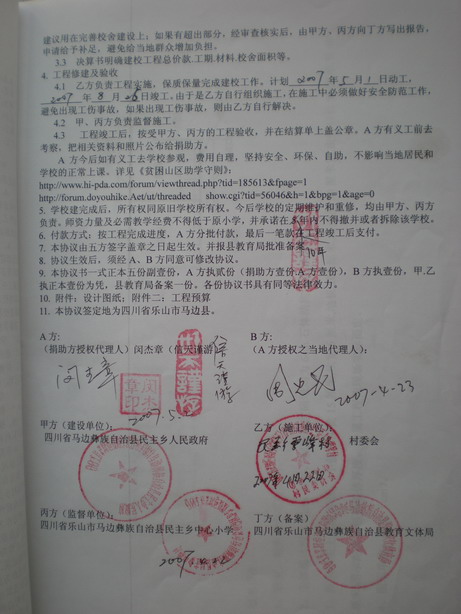 建议用在完善校舍建设上；如果有超出部分，经审查核实后，由甲方、丙方向丁方写出报告，
申请给予补足，避免给当地群众增加负担。
3.3 决算书明确建校工程总价款.工期.材料.校舍面积等。
4. 工程修建及验收
4.1 乙方负责工程实施，保质保量完成建校工作。计划 2007 年 5 月 1 日动工，
2007 年 8 月 26 日竣工。由于是乙方自行组织施工，在施工中必须做好安全防范工作，
避免出现工伤事故，如果出现工伤事故，则由乙方自行解决。
4.2 甲、丙方负责监督施工。
4.3 工程竣工后，按受甲方、丙方的工程验收，并在结算单上盖公章。A 方有义工前去
考察，把相关资料和照片公布给捐助方。
A 方今后如有义工去学校参观，费用自理，坚持安全、环保、自助，不影响当地居民和
学校的正常上课。详见《贫困山区助学守则》：
http://www.hi-pda.com/forum/viewthread.php?tid=185613&fpage=1
http://forum.doyouhike.Aet/ut/threaded show.cgi?tid=56046&h=1&bpg=1&age=0
5. 学校建完成后，所有权同原旧学校所有权。今后学校的定期维护和重修，均由甲方、丙方
负责。师资力量及必需教学经费不得低于原小学，并承诺在 年内不得撤并或者拆除该学校。
10年
6. 付款方式：按工程完成进度，A 方分批付款，最后一笔款在工程竣工后支付。
7. 本协议由五方签字盖章之日起生效，并报县教育局批准备案。
8. 协议生效后，须经 A、B 方同意可修改协议。
9. 本协议书一式正本五份副壹份，A 方执贰份（捐助方壹份.A 方壹份），B 方执壹份，甲.乙
执正本壹份为凭，县教育局备案一份。各份协议书具有同等法律效力。
10. 附件：设计图纸；附件二：工程预算
11. 本协议签定地为四川省乐山市马边县。
A 方：
（捐助方授权代理人）闵杰章（信天谨游）
闵杰章
信天谨游
2007.5.
B 方：
（A 方授权之当地代理人）：
2007-4-23
甲方（建设单位）：
四川省马边彝族自治县民主乡人民政府
乙方（施工单位）：
村委会
丙方（监督单位）：
四川省乐山市马边彝族自治县民主乡中心小学
2007
丁方（备案）
四川省乐山市马边彝族自治县教育文体局